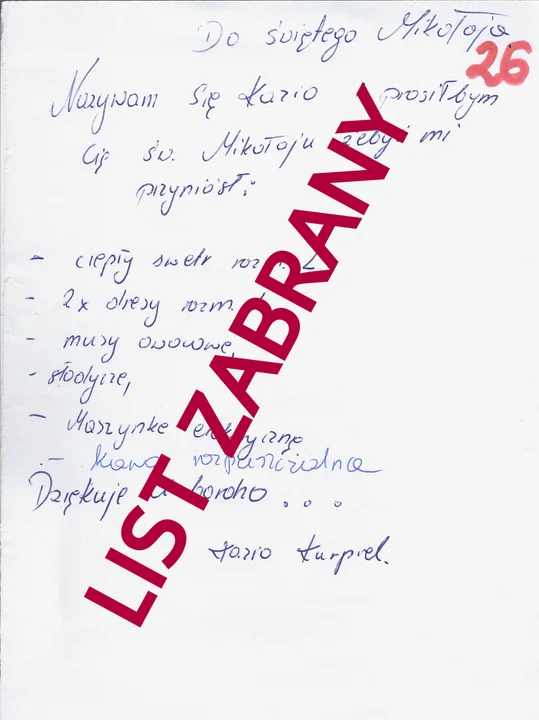 Do świętego Mikołaja
26
Nazywam się Kazio prosiłbym
Cię św. Mikołaju żebyś mi
przyniósł:
- ciepły swetr rozm. L
- 2x dresy rozm.
- musy owocowe,
- słodycze,
- Maszynkę elektryczną
- kawa rozpuszczalna
Dziękuje Ci bardzo . . .
Kazio Kurpiel.
LIST ZABRANY